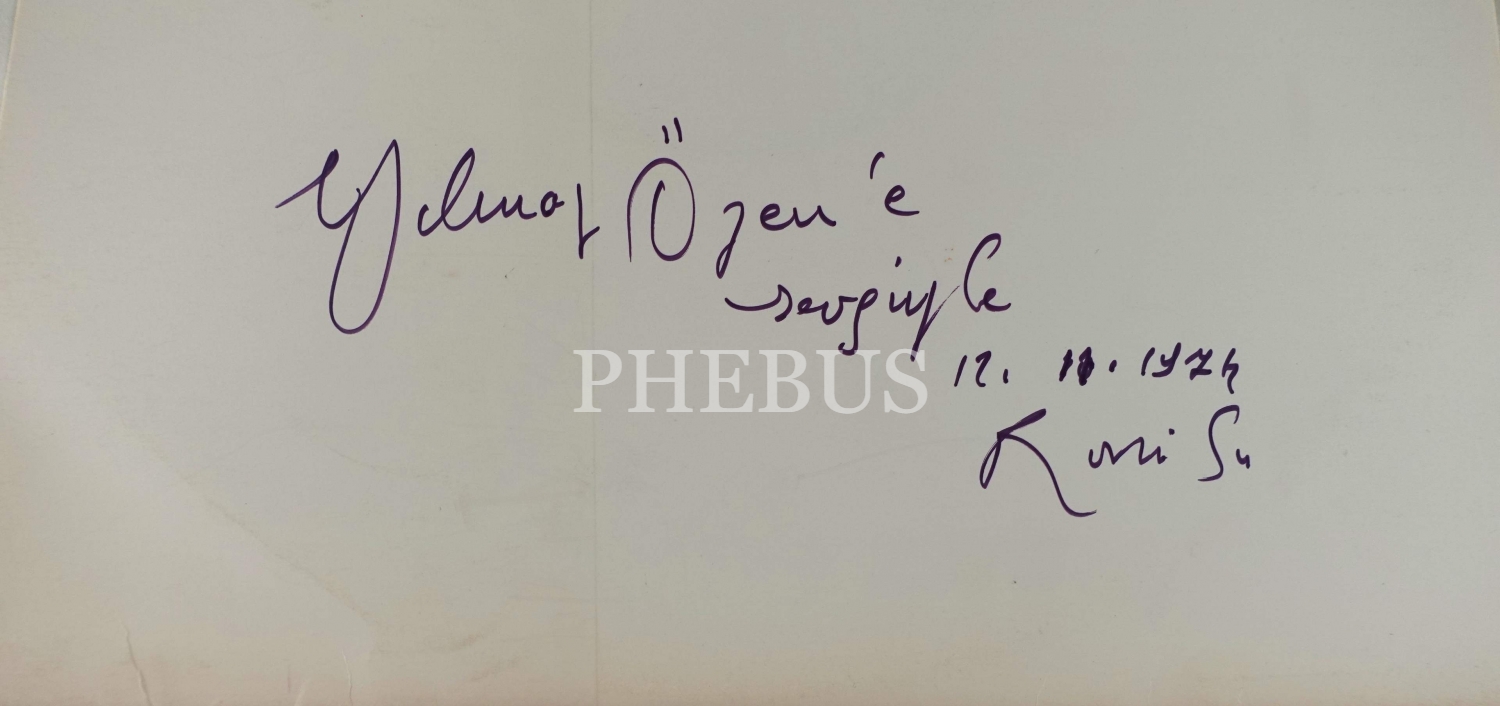 Yılmaz Özen'e
sevgiyle
PHEBUS
12. 11. 1974
Ruhi Su